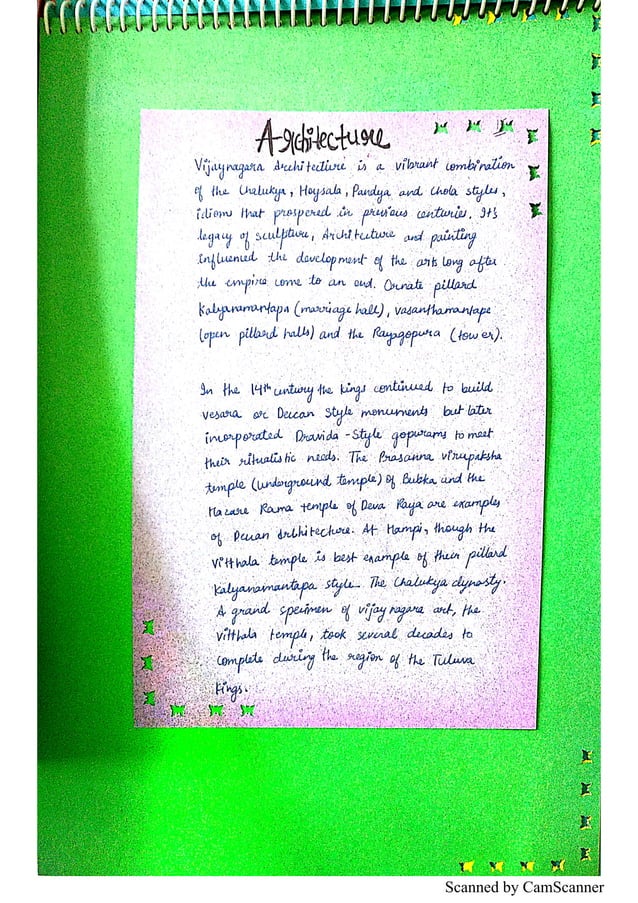 Architecture
Vijaynagara Architecture is a vibrant combination
of the Chalukya, Hoysala, Pandya and Chola styles,
idiom that prospered in previous centuries. Its
legacy of sculpture, Architecture and painting
influenced the development of the arts long after
the empire come to an end. Ornate pillard
Kalyanamantapa (marriage hall), vasanthamantapa
(open pillard halls) and the Rayagopura (tower).
In the 14th century the kings continued to build
vesara or Deccan Style monuments but later
incorporated Dravida-Style gopurams to meet
their ritualistic needs. The Prasanna virupaksha
temple (underground temple) of Bukka and the
Hazare Rama temple of Deva Raya are examples
of Deccan architecture. At Hampi, though the
Vitthala temple is best example of their pillard
Kalyanamantapa style. The Chalukya dynasty.
A grand specimen of vijaynagara art, the
vitthala temple, took several decades to
complete during the region of the Tuluva
kings.
Scanned by CamScanner